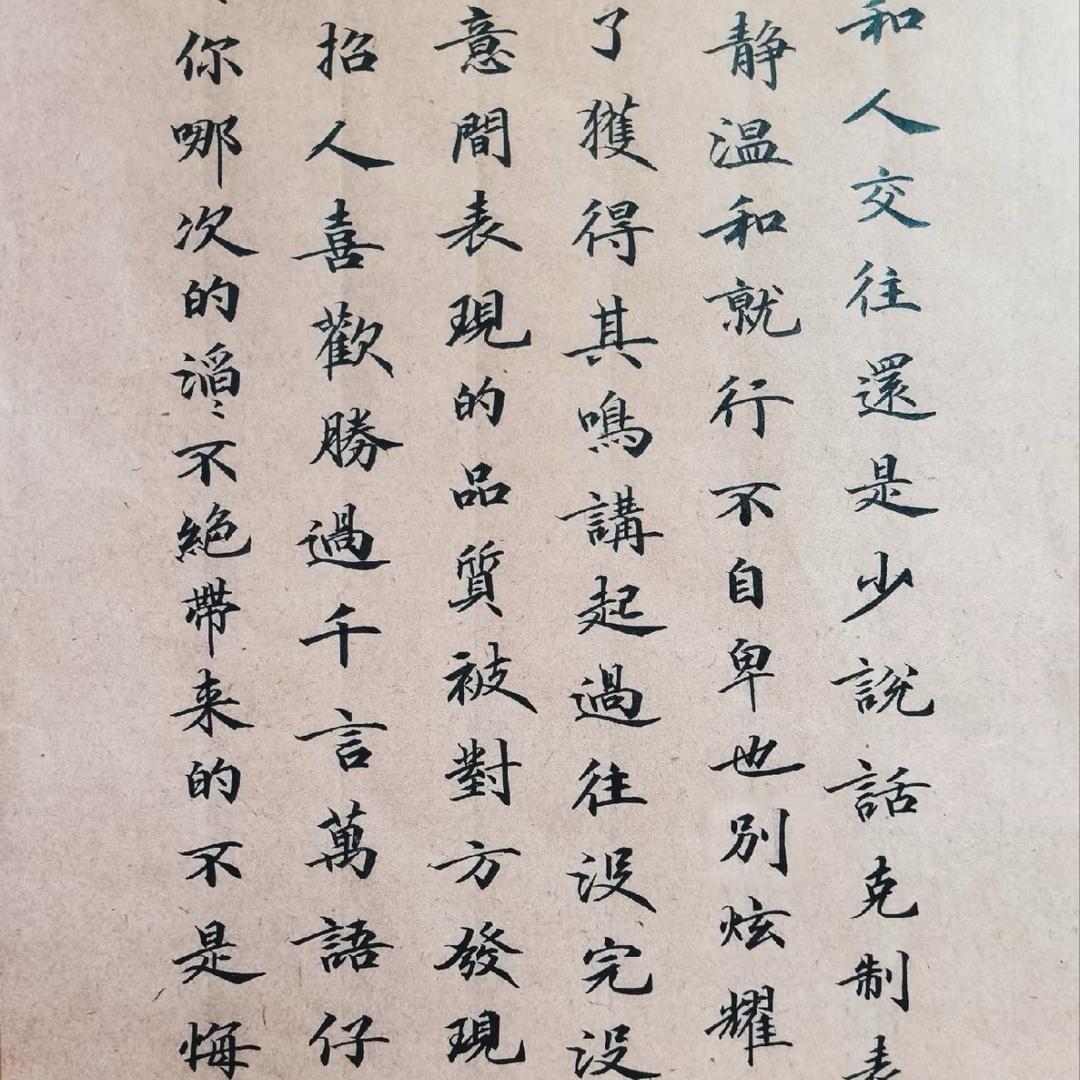 和人交往還是少說話克制表
静温和就行不自卑也別炫耀
了獲得其鳴講起過往没完没
意間表現的品質被對方發現
招人喜歡勝過千言萬語仔
你哪次的滔〻不絕帶来的不是悔